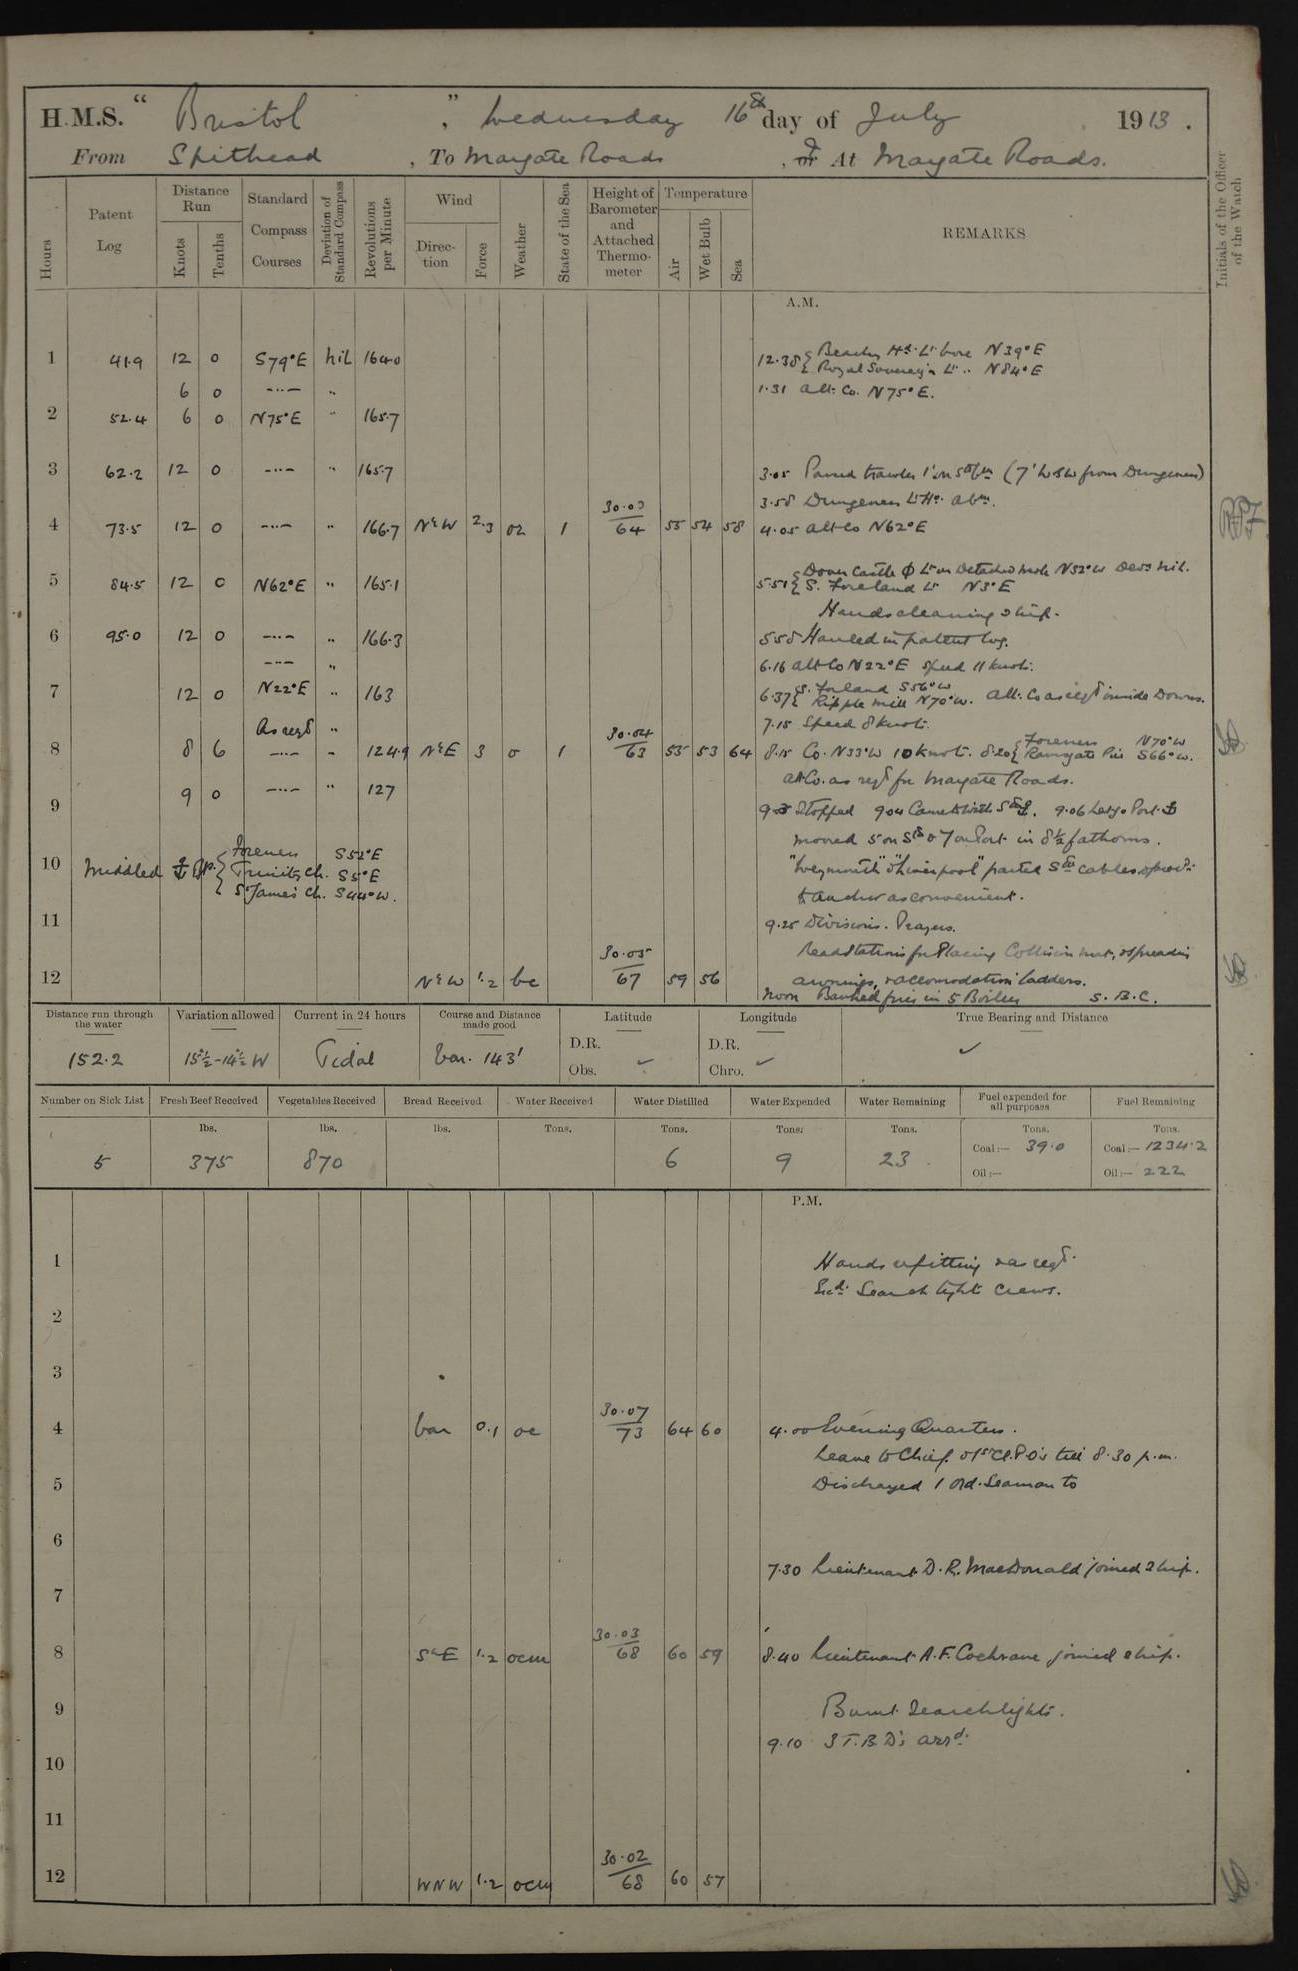 H.M.S. " Bristol ", Wednesday 16th day of July 1913.
From Spithead, To Margate Roads, or At Margate Roads.
Hours
Patent Log
Distance Run
Knots
Tenths
Standard Compass Courses
Deviation of Standard Compass
Revolutions per Minute
Wind
Direction
Force
Weather
State of the Sea
Height of Barometer and Attached Thermometer
Temperature
Air
Wet Bulb
Sea
REMARKS
Initials of the Officer of the Watch
A.M.
1 41.9 12 0 S79°E nil 164.0 12.38 { Beachy Hd. Lt. bore N39°E
Royal Sovereign Lt. " N84°E
6 0 -..- " 1.31 alt. Co. N75°E.
2 52.4 6 0 N75°E " 165.7
3 62.2 12 0 -..- " 165.7 3.05 Passed trawler 1' on (7' WSW from Dungeness)
3.58 Dungeness Lt Ho. abm.
4 73.5 12 0 -..- " 166.7 N'W 2.3 oz 1 30.03 64 55 54 58 4.05 alt Co N62°E
5 84.5 12 0 N62°E " 165.1 5.51 { Dover Castle Φ Lt on Detached Mole N52°W Devn nil.
S. Foreland Lt N3°E
Hands cleaning ship.
6 95.0 12 0 -..- " 166.3 5.58 Hauled in patent log.
-..- " 6.16 alt Co N22°E speed 11 knots.
7 12 0 N22°E " 163 6.37 { S. Foreland S56°W
Ripple Mill N70°W. alt. Co as reqd inside Downs.
As reqd " 7.15 Speed 8 knots.
8 8 6 -..- " 124.9 N'E 3 o 1 30.04 63 55 53 64 8.15 Co. N33°W 10 knots. 8.20 { Foreness N70°W
Ramsgate Pier S66°W.
9 0 -..- " 127 alt Co. as reqd for Margate Roads.
9 Stopped 9.04 Came to with 9.06 Let go Port
moored 5 on & 7 on Port in 8½ fathoms.
10 Middled { Foreness S52°E
Trinity Ch. S5°E
St James Ch. S44°W.
"Weymouth" & "Liverpool" parted cables &
to anchor as convenient.
11 9.25 Divisions. Prayers.
Read Stations for Placing Collision mat, & spreading
12 N'W 1.2 bc 30.05 67 59 56 awnings, & accomodation ladders.
Noon Banked fires in 5 Boilers S.B.C.
Distance run through the water
152.2
Variation allowed
15½-14½ W
Current in 24 hours
Tidal
Course and Distance made good
Var. 143'
Latitude
D.R.
Obs.
Longitude
D.R.
Chro.
True Bearing and Distance
Number on Sick List
5
Fresh Beef Received
lbs.
375
Vegetables Received
lbs.
870
Bread Received
lbs.
Water Received
Tons.
Water Distilled
Tons.
6
Water Expended
Tons.
9
Water Remaining
Tons.
23
Fuel expended for all purposes
Tons.
Coal:— 39.0
Oil:—
Fuel Remaining
Tons.
Coal:— 1234.2
Oil:— 222
P.M.
1 Hands refitting & as reqd.
Exd. Search light Crews.
2
3
4 Var 0.1 oc 30.07 73 64 60 4.00 Evening Quarters.
Leave to Chief & 1st Cl. P.O's till 8.30 p.m.
5 Discharged 1 Ord. Seaman to
6
7.30 Lieutenant D.R. MacDonald joined ship.
7
8 S'E 1.2 ocm 30.03 68 60 59 8.40 Lieutenant A.F. Cochrane joined ship.
9 Burnt Searchlights.
9.10 3 T.B.D's arrd.
10
11
12 WNW 1.2 ocm 30.02 68 60 57